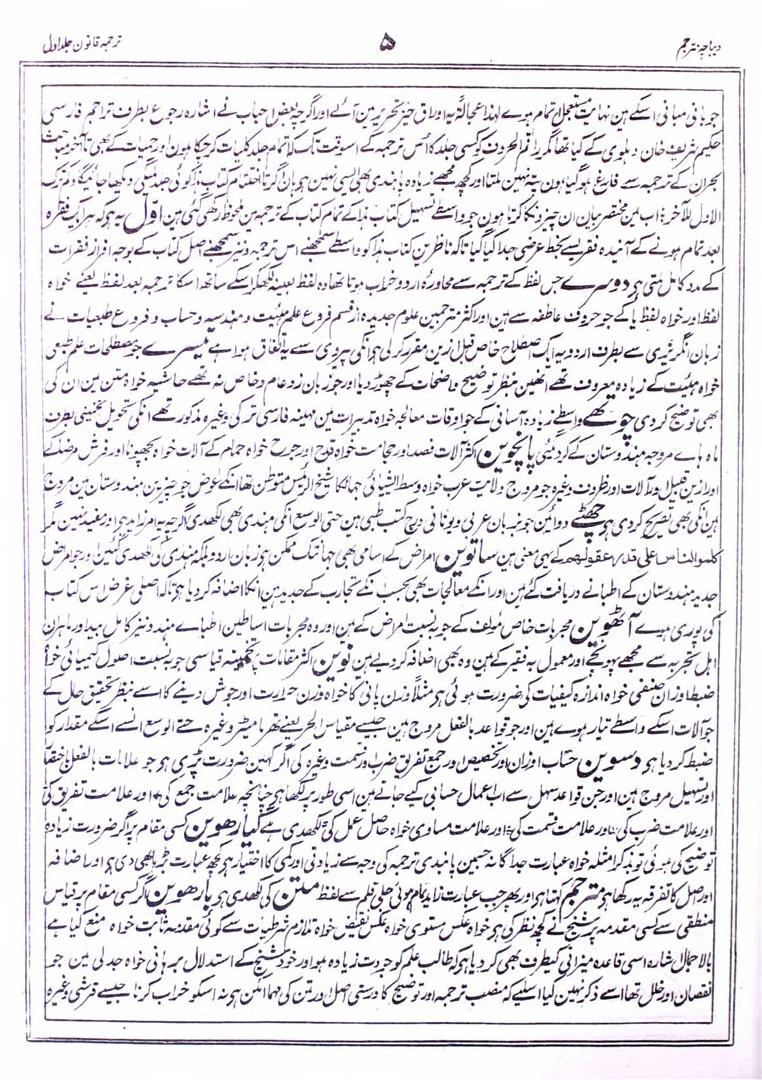 دیباچہ مترجم ۵ ترجمہ قانون جلد اول
جو بانی مبانی اسکے ہین نہایت مستعجل اتمام ہوے لہذا عجالۃً یہ اوراق حیز تحریر مین آئے اور اگرچہ بعض احباب نے اشارہ رجوع بطرف تراجم فارسی
حکیم شریف خان دہلوی کے کیا تھا مگر راقم الحروف کو کسی جلد کا اس ترجمہ کے اسوقت تک کہ تمام جلد کلیات کر چکا ہون اور حمیات کے بھی تا آخر مباحث
بحران کے ترجمہ سے فارغ ہو گیا ہون پتہ نہین ملتا اور کچھ مجھے زیادہ پابندی بھی ایسی نہین ہو ہان گر تا اختتام کتاب ہذا کوئی جلد ملگئی دیکھا جائیگا و کم ترک
الاول للآخر اب مین مختصر بیان ان چیزونکا کرتا ہون جو واسطے تسہیل کتاب ہذا کے تمام کتاب کے ترجمہ مین ملحوظ رکھی گئی ہین اول یہ ہو کہ ہر ایک فقرہ
بعد تمام ہونے کے آئندہ فقرے سے بخط عرضی جدا کیا گیا تاکہ ناظرین کتاب ہذا کو واسطے سمجھنے اس ترجمہ و نیز سمجھنے اصل کتاب کے بوجہ افراز فقرات
کے مدد کامل ملتی ہو دوسرے جس لفظ کے ترجمہ سے محاورہ اردو خراب ہوتا تھا وہ لفظ بعینہ لکھکر اسکے ساتھ اسکا ترجمہ بعد لفظ یعنے خواہ
لفظ اور خواہ لفظ یا کے جو حروف عاطفہ سے ہین اور اکثر مترجمین علوم جدیدہ از قسم فروع علم ہیئت و ہندسہ و حساب و فروع طبعیات نے
زبان انگریزی سے بطرف اردو یہ ایک اصطلاح خاص قبل ازین مقرر کر لی ہو انکی پیروی سے یہ اتفاق ہوا ہے تیسرے جو مصطلحات علم طبعی
خواہ ہیئت کے زیادہ معروف تھے انھین بنظر توضیح واضحات کے چھوڑ دیا اور جو زبان زد عام و خاص نہ تھے حاشیہ خواہ متن مین ان کی
بھی توضیح کر دی چوتھے واسطے زیادہ آسانی کے جو اوقات معالجہ خواہ تدبیرات مین مہینہ فارسی ترکی وغیرہ مذکور تھے انکی تحویل تخمینی بطرف
ماہ ہاے مروجہ ہندوستان کے کر دیگئی پانچوین اکثر آلات فصد اور حجامت خواہ قروح اور جروح خواہ حمام کے آلات خواہ بچھونا اور فرش مرضے کے
اور ازین قبیل اور آلات اور ظروف وغیرہ جو مروج ولایت عرب خواہ وسط ایشیائی جہانکا شیخ الرئیس متوطن تھا انکے عوض جو چیزین ہندوستان مین مروج
ہین انکی بھی تصریح کر دی ہو چھٹے دوائین جو بزبان عربی و یونانی درج کتب طبی ہین حتی الوسع انکی ہندی بھی لکھدی اگرچہ یہ امر زائد ہو اور مفید نہین مگر
کلموا الناس علی قدر عقولہم کے یہی معنی ہین ساتوین امراض کے اسامی بھی جہانتک ممکن ہو زبان اردو بلکہ ہندی کی لکھدی گئین اور جو امراض
جدید ہندوستان کے اطبا نے دریافت کیے ہین اور انکے معالجات بھی بحسب نئے تجارب کے جدید ہین انکا اضافہ کر دیا ہو تاکہ اصلی غرض اس کتاب
کی پوری ہوے آٹھوین مجربات خاص مؤلف کے جو بہ نسبت امراض کے ہین اور وہ مجربات اساطین اطباے ہند و نیز کامل بید اور ماہران
اہل تجربہ سے مجھے پہونچے اور معمول بہ فقیر کے ہین وہ بھی اضافہ کر دیے ہین نوین اکثر مقامات پر تخمینہ قیاسی جو بہ نسبت اصول کیمیائی خواہ
ضبط اوزان صنفی خواہ اندازہ کیفیات کی ضرورت ہوئی ہو مثلاً وزن پانی کا خواہ وزن حرارت اور جوش دینے کا اسے بنظر تحقیق حال کے
جو آلات اسکے واسطے تیار ہوے ہین اور جو قواعد بالفعل مروج ہین جیسے مقیاس الحر یعنے تھرمامیٹر وغیرہ حتے الوسع اُنسے اسکے مقدار کو
ضبط کر دیا ہو دسوین حساب اوزان اور تخصیص اور جمع تفریق ضرب و قسمت وغیرہ کی اگر کہین ضرورت پڑی ہو جو علامات بالفعل باختصار
اور تسہیل مروج ہین اور جن قواعد سہل سے اب اعمال حسابی کیے جاتے ہین اسی طور پر لکھا ہو چنانچہ علامت جمع کی + اور علامت تفریق کی
اور علامت ضرب کی × اور علامت قسمت کی ÷ اور علامت مساوی خواہ حاصل عمل کی = لکھدی ہے گیارھوین کسی مقام پر اگر ضرورت زیادہ
توضیح کی ہوئی تو بذکر امثلہ خواہ عبارت جداگانہ جسمین پابندی ترجمہ کی وجہ سے زیادتی اور کمی کا اختیار ہو کچھ عبارت بڑھا بھی دی ہو اور اضافہ
اور اصل کا تفرقہ یہ رکھا ہو مترجم کہتا ہو اور پھر جب عبارت زاید تمام ہوئی جلی قلم سے لفظ متن کی لکھدی ہو بارھوین اگر کسی مقام پر قیاس
منطقی سے کسی مقدمہ پر شیخ نے کچھ نظر کی ہو خواہ عکس مستوی خواہ عکس نقیض خواہ تلازم شرطیات سے کوئی مقدمہ ثابت خواہ منع کیا ہے
بالاجمال اشارہ اسی قاعدہ میزانی کیطرف بھی کر دیا ہو کہ طالب علم کو جودت زیادہ ہو اور خود شیخ کے استدلال برہانی خواہ جدلی مین جو
نقصان اور خلل تھا اسے ذکر نہین کیا اسلیے کہ منصب ترجمہ اور توضیح کا درستی اصل اور متن کی مہما امکن ہو نہ اسکو خراب کرنا جیسے قرشی وغیرہ